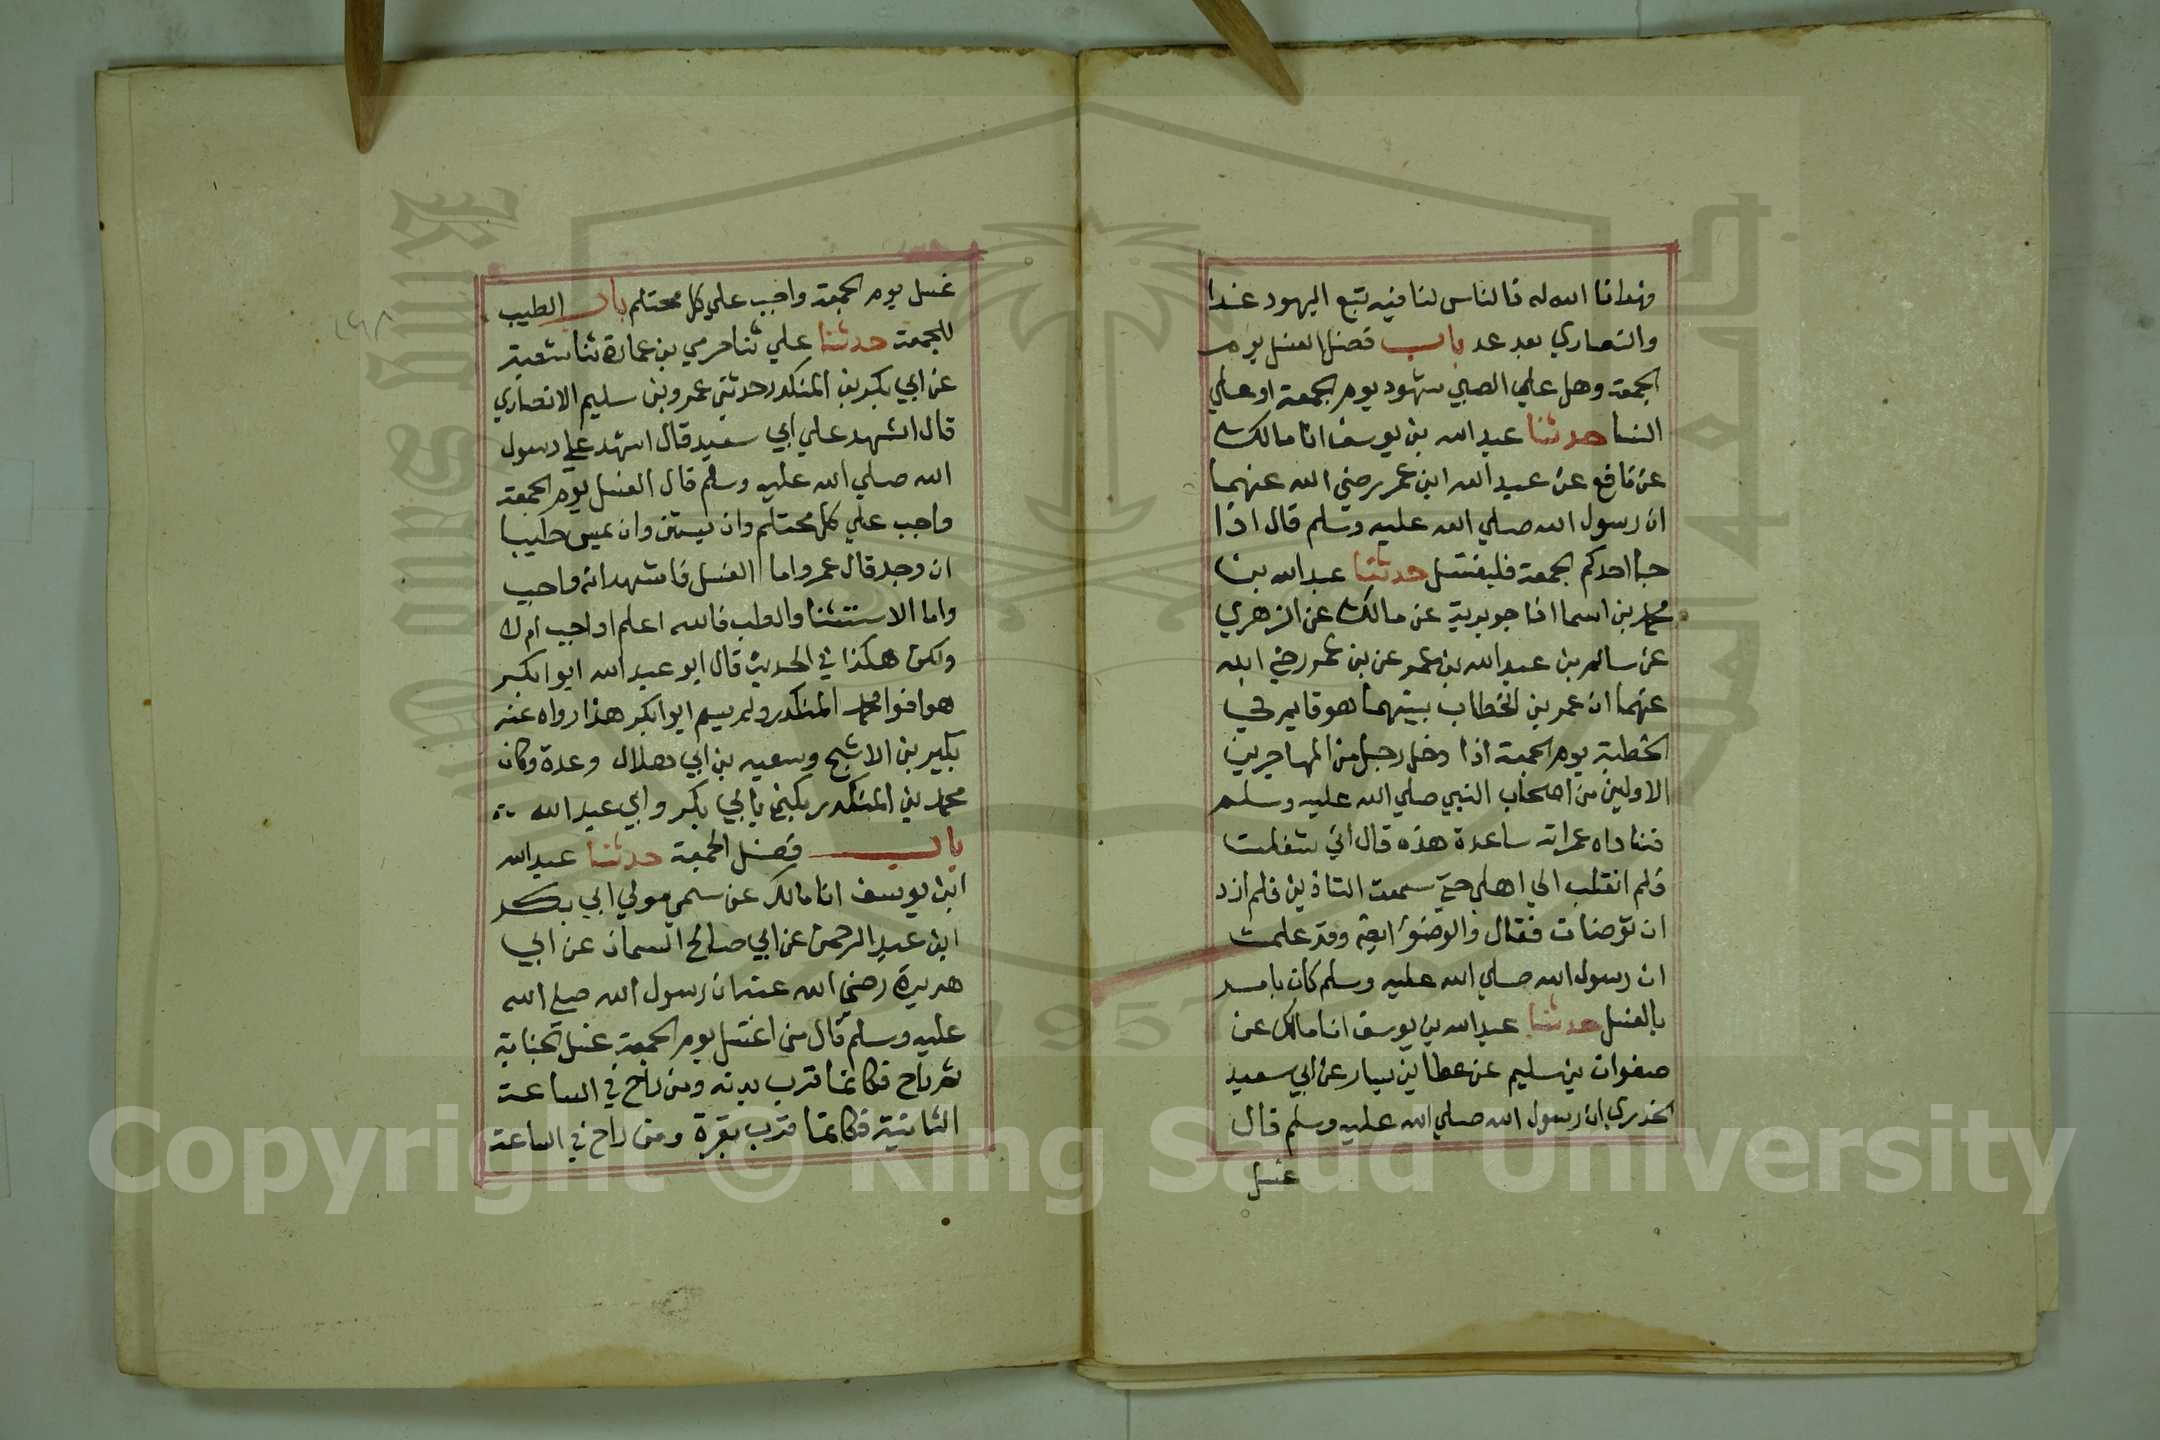 فهدانا الله له فالناس لنا فيه تبع اليهود غدا
والنصاري بعد غد باب فضل الغسل يوم
الجمعة وهل علي الصبي شهود يوم الجمعة او علي
النسا حدثنا عبد الله بن يوسف انا مالك
عن نافع عن عبد الله ابن عمر رضي الله عنهما
ان رسول الله صلي الله عليه وسلم قال اذا
جا احدكم الجمعة فليغتسل حدثنا عبد الله بن
محمد بن اسما انا جويرية عن مالك عن الزهري
عن سالم بن عبد الله بن عمر عن بن عمر رضي الله
عنهما ان عمر بن الخطاب بينهما هو قايم في
الخطبة يوم الجمعة اذا دخل رجل من المهاجرين
الاولين من اصحاب النبي صلي الله عليه وسلم
فناداه عمر اية ساعدة هذه قال اني شغلت
فلم انقلب الي اهلي حتي سمعت التاذين فلم ازد
ان توضات فقال والوضؤ ايضا وقد علمت
ان رسول الله صلي الله عليه وسلم كان يامر
بالغسل حدثنا عبد الله بن يوسف انا مالك عن
صفوان بن سليم عن عطا بن يسار عن ابي سعيد
الخدري ان رسول الله صلي الله عليه وسلم قال
غسل
غسل يوم الجمعة واجب علي كل محتلم باب الطيب
للجمعة حدثنا علي ثنا حرمي بن عمارة ثنا شعبة
عن ابي بكر بن المنكدر حدثني عمرو بن سليم الانصاري
قال اشهد علي ابي سعيد قال اشهد علي رسول
الله صلي الله عليه وسلم قال الغسل يوم الجمعة
واجب علي كل محتلم وان يستن وان يمس طيبا
ان وجد قال عمرو اما الغسل فاشهد انه واجب
واما الاستثنا والطب فالله اعلم اواجب ام لا
ولكن هكذا في الحديث قال ابو عبد الله ابو ابكر
هو اخوا محمد المنكدر ولم يسم ابوا بكر هذا رواه عنه
بكير بن الاشج وسعيد بن ابي هلال وعدة وكان
محمد بن المنكدر يكني بابي بكر وابي عبد الله
باب فضل الجمعة حدثنا عبد الله
ابن يوسف انا مالك عن سمي مولي ابي بكر
ابن عبد الرحمن عن ابي صالح السمان عن ابي
هريرة رضي الله عنه ان رسول الله صلي الله
عليه وسلم قال من اغتسل يوم الجمعة غسل الجنابة
ثم راح فكانما قرب بدنه ومن راح في الساعة
الثانية فكانما قرب بقرة ومن راح في الساعة
١٩٨
King Saud University
1957
Copyright © King Saud University